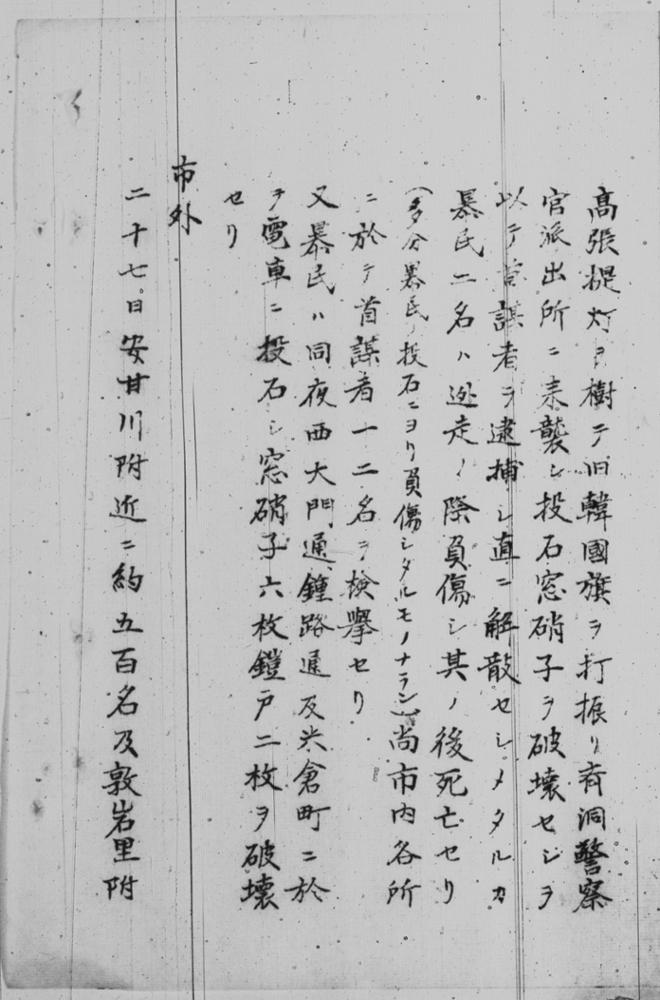 高張提灯ヲ樹テ旧韓國旗ヲ打振リ斉洞警察
官派出所ニ来襲シ投石窓硝子ヲ破壊セシヲ
以テ首謀者ヲ逮捕シ直ニ解散セシメタルカ
暴民二名ハ逃走ノ際負傷シ其ノ後死亡セリ
(多分暴民ノ投石ニヨリ負傷シタルモノナラン)尚市内各所
ニ於テ首謀者一二名ヲ検擧セリ
又暴民ハ同夜西大門通鍾路通及米倉町ニ於
テ電車ニ投石シ窓硝子六枚鎧戸二枚ヲ破壊
セリ
市外
二十七日安甘川附近ニ約五百名及敦岩里附